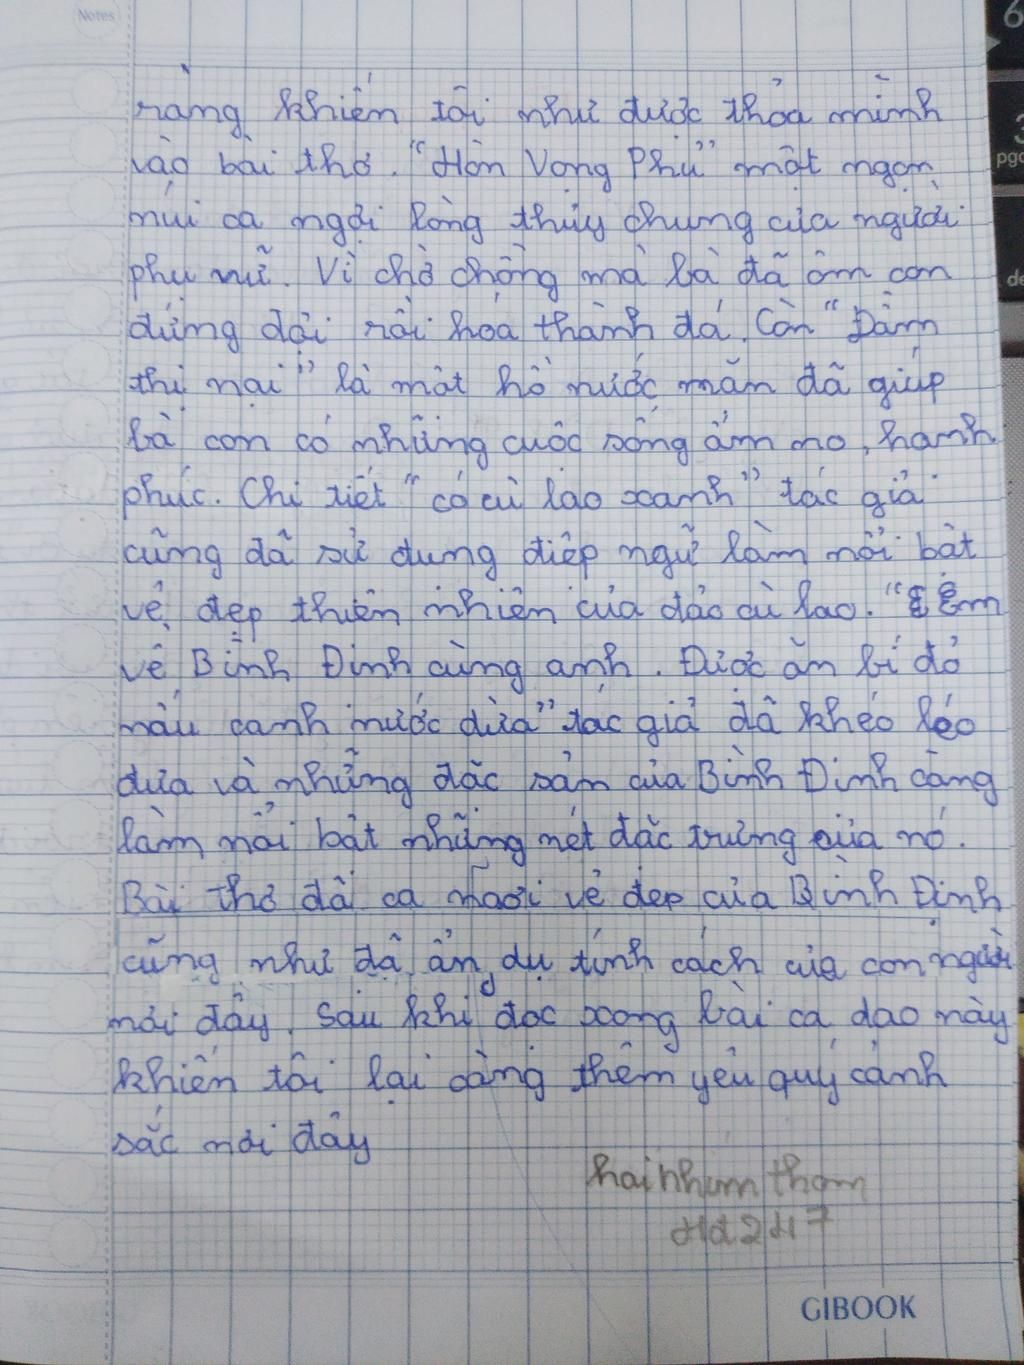 Notes
ràng khiến tôi như được thỏa mình
vào bài thơ. "Hòn Vọng Phu" một ngọn
núi ca ngợi lòng thủy chung của người
phụ nữ. Vì chờ chồng mà bà đã ôm con
đứng đợi rồi hóa thành đá. Còn "Đầm
thị nại" là một hồ nước mặn đã giúp
bà con có những cuộc sống ấm no, hạnh
phúc. Chi tiết "có cù lao xanh" tác giả
cũng đã sử dụng điệp ngữ làm nổi bật
vẻ đẹp thiên nhiên của đảo cù lao. "Em
về Bình Định cùng anh. Được ăn bí đỏ
nấu canh nước dừa" tác giả đã khéo léo
đưa và những đặc sản của Bình Định càng
làm nổi bật những nét đặc trưng của nó.
Bài thơ đã ca ngợi vẻ đẹp của Bình Định
cũng như đã ẩn dụ tính cách của con người
nơi đây. Sau khi đọc xong bài ca dao này
khiến tôi lại càng thêm yêu quý cảnh
sắc nơi đây
hainhumthom
GIBOOK
6
3
pgd
de